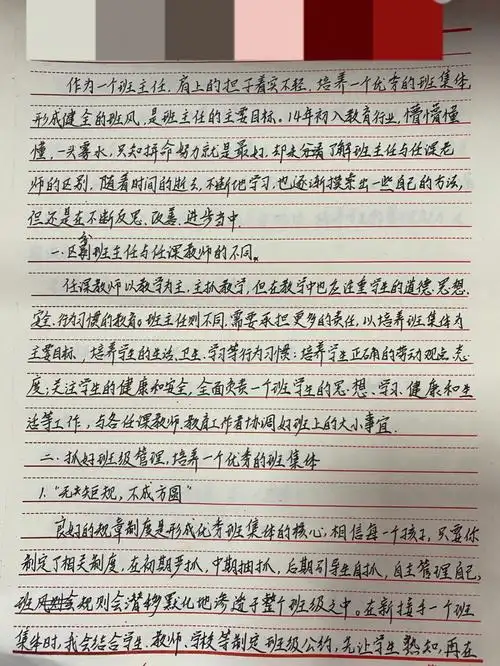 作为一个班主任,肩上的担子着实不轻,培养一个优秀的班集体
形成健全的班风,是班主任的主要目标。14年初入教育行业,懵懵懂
懂,一头雾水,只知拼命努力就是最好,却未分清了解班主任与任课老
师的区别,随着时间的逝去,不断地学习,也逐渐摸索出一些自己的方法,
但还是在不断反思、改善、进步当中.
一.区分班主任与任课教师的不同。
任课教师以教学为主,主抓教学,但在教学中也应注重学生的道德、思想、
安全、行为习惯的教育。班主任则不同,需要承担更多的责任,以培养班集体为
主要目标,培养学生的生活、卫生、学习等行为习惯;培养学生正确的劳动观念、态
度;关注学生的健康和安全,全面负责一个班学生的思想、学习、健康和生
活等工作,与各任课教师、教育工作者协调好班上的大小事宜.
二.抓好班级管理,培养一个优秀的班集体
1."无矩规,不成方圆"
良好的规章制度是形成优秀班集体的核心,相信每一个孩子,只要你
制定了相关制度,在初期严抓,中期抽抓,后期引导生自抓,自主管理自己,
班风规则会潜移默化地渗透于整个班级之中。在新接手一个班
集体时,我会结合学生、教师、学校等制定班级公约,先让学生熟知,再在